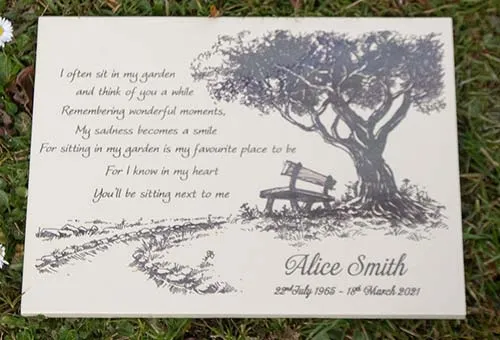 I often sit in my garden
and think of you a while
Remembering wonderful moments,
My sadness becomes a smile
For sitting in my garden is my favourite place to be
For I know in my heart
You'll be sitting next to me
Alice Smith
22nd July 1965 - 18th March 2021